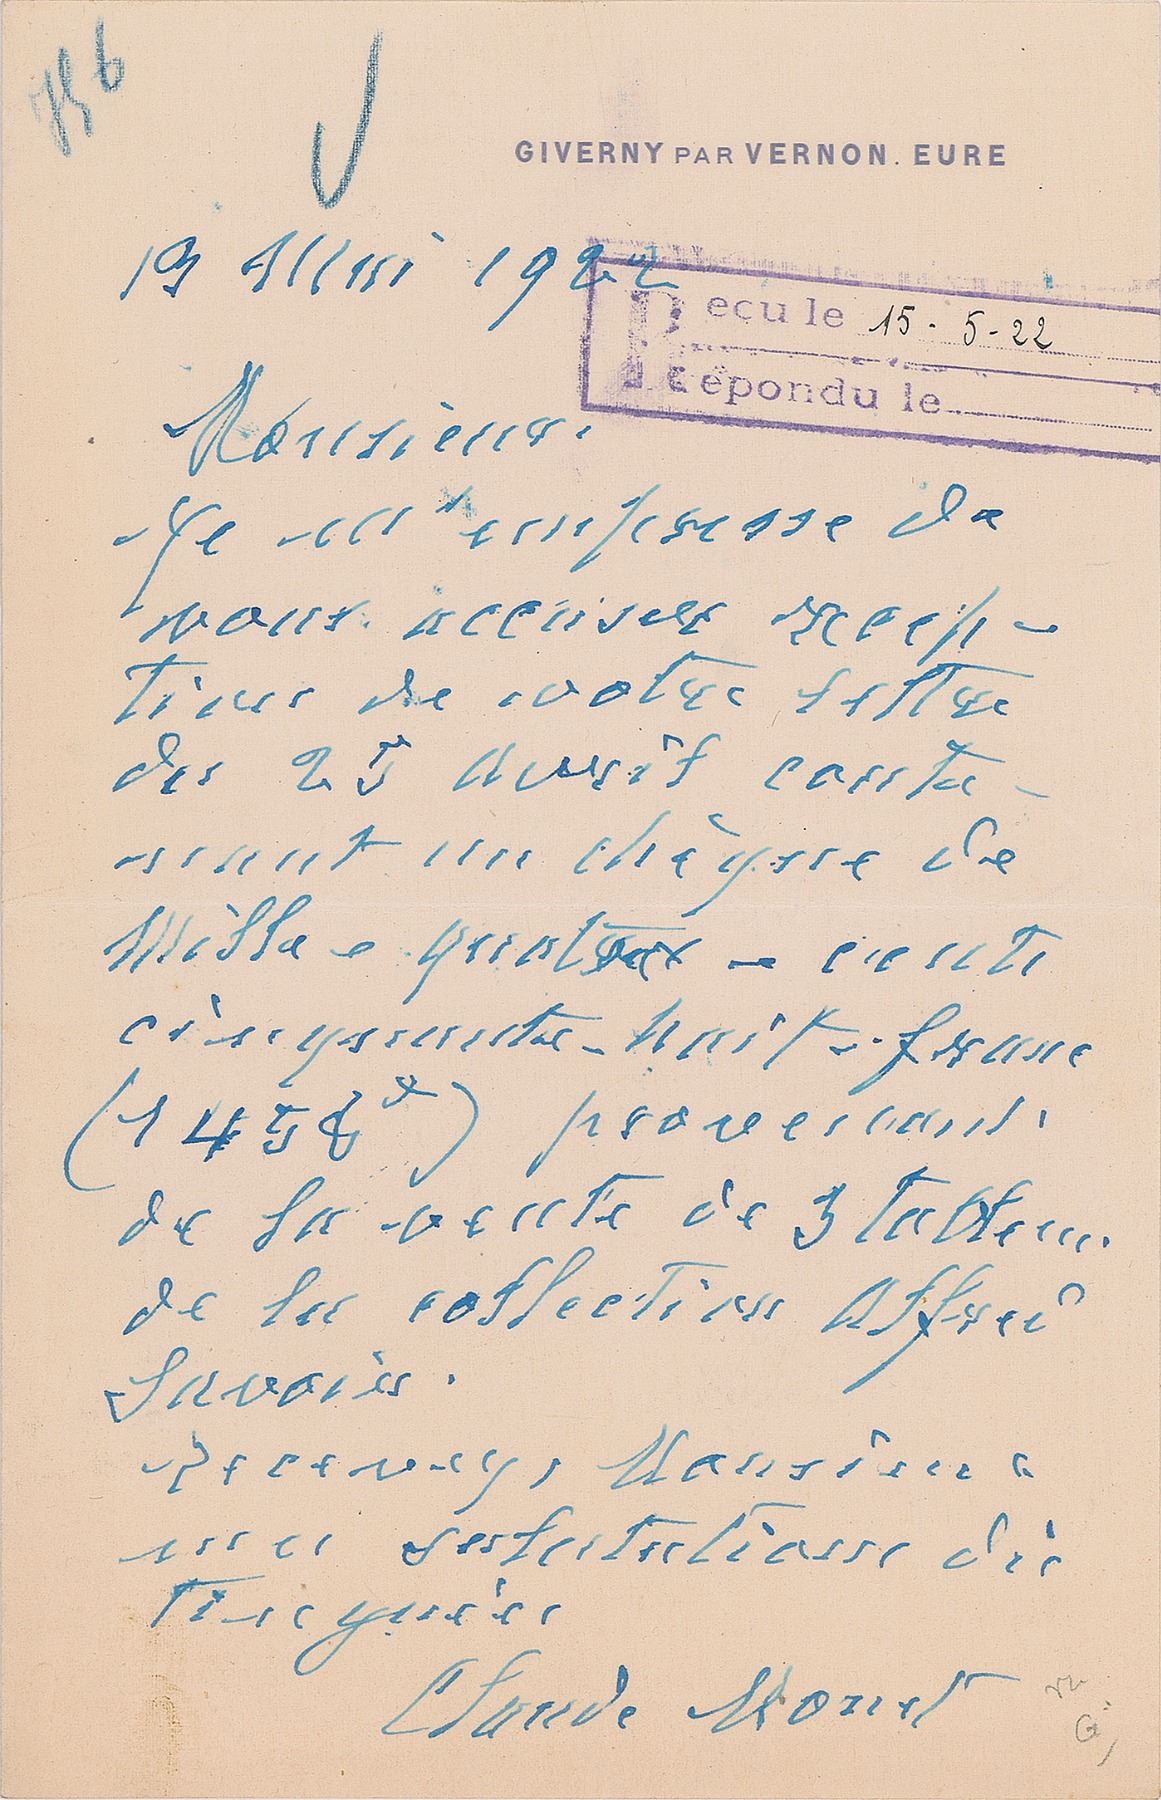 756
GIVERNY PAR VERNON. EURE
13 Mai 1922
Reçu le 15-5-22
Répondu le
Monsieur.
Je m'empresse de
vous accuser récep-
tion de votre lettre
du 25 avril conte-
nant un chèque de
Mille-quatre-cent
cinquante-huit-franc
(1458 f) provenant
de la vente de 3 tableau.
de la collection Alfred
Savoir.
Recevez, Monsieur
mes salutations dis
tinguées
Claude Monet